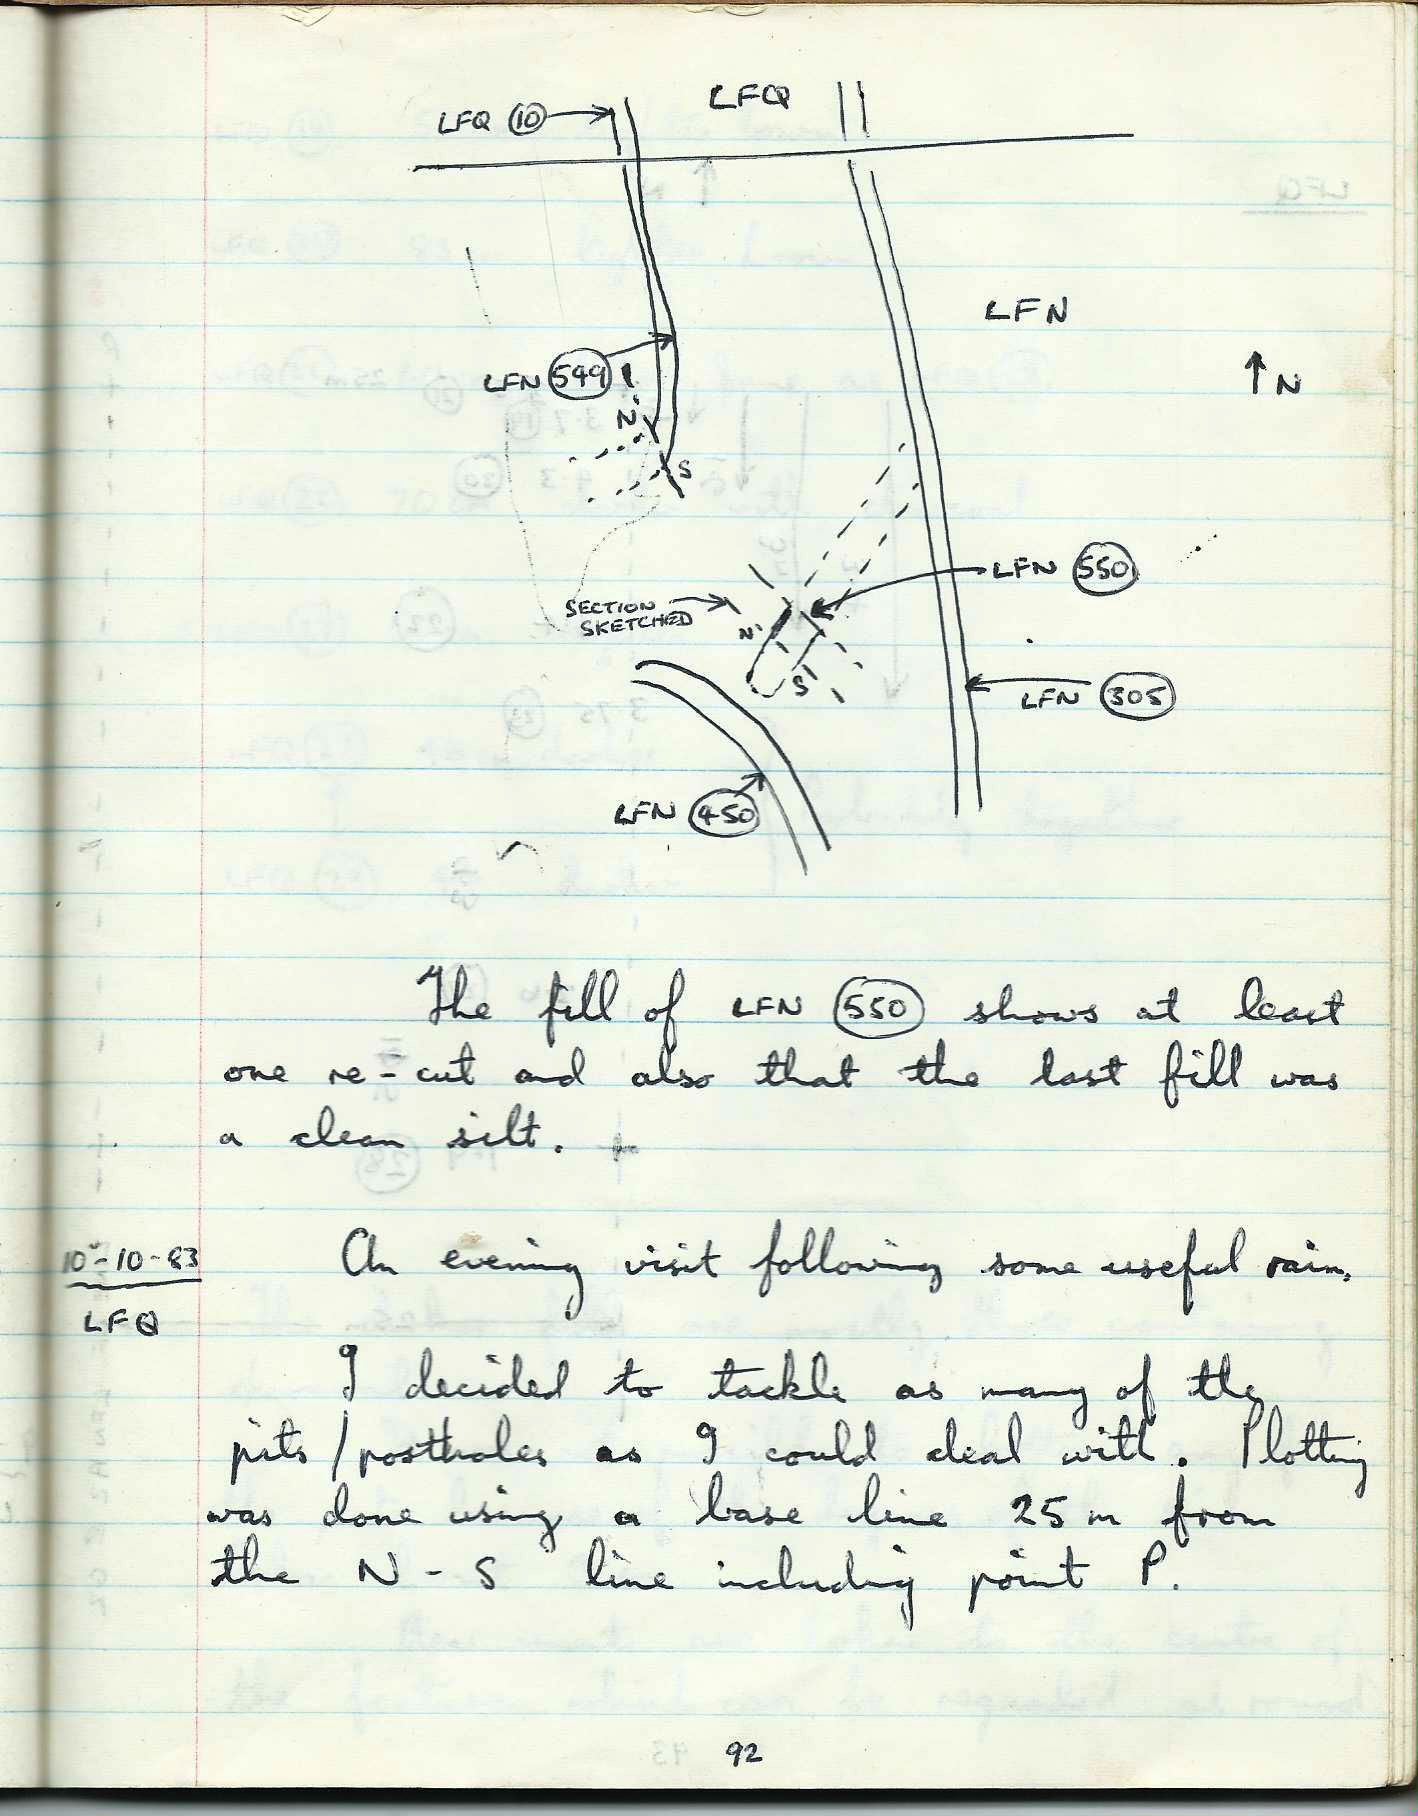 LFQ
LFQ 10
LFN
LFN 549
N
N
S
LFN 550
SECTION
SKETCHED
N
S
LFN 305
LFN 450
The fill of LFN 550 shows at least
one re-cut and also that the last fill was
a clean silt.
10-10-83
LFQ
An evening visit following some useful rain.
I decided to tackle as many of the
pits/postholes as I could deal with. Plotting
was done using a base line 25m from
the N-S line including point P.
92